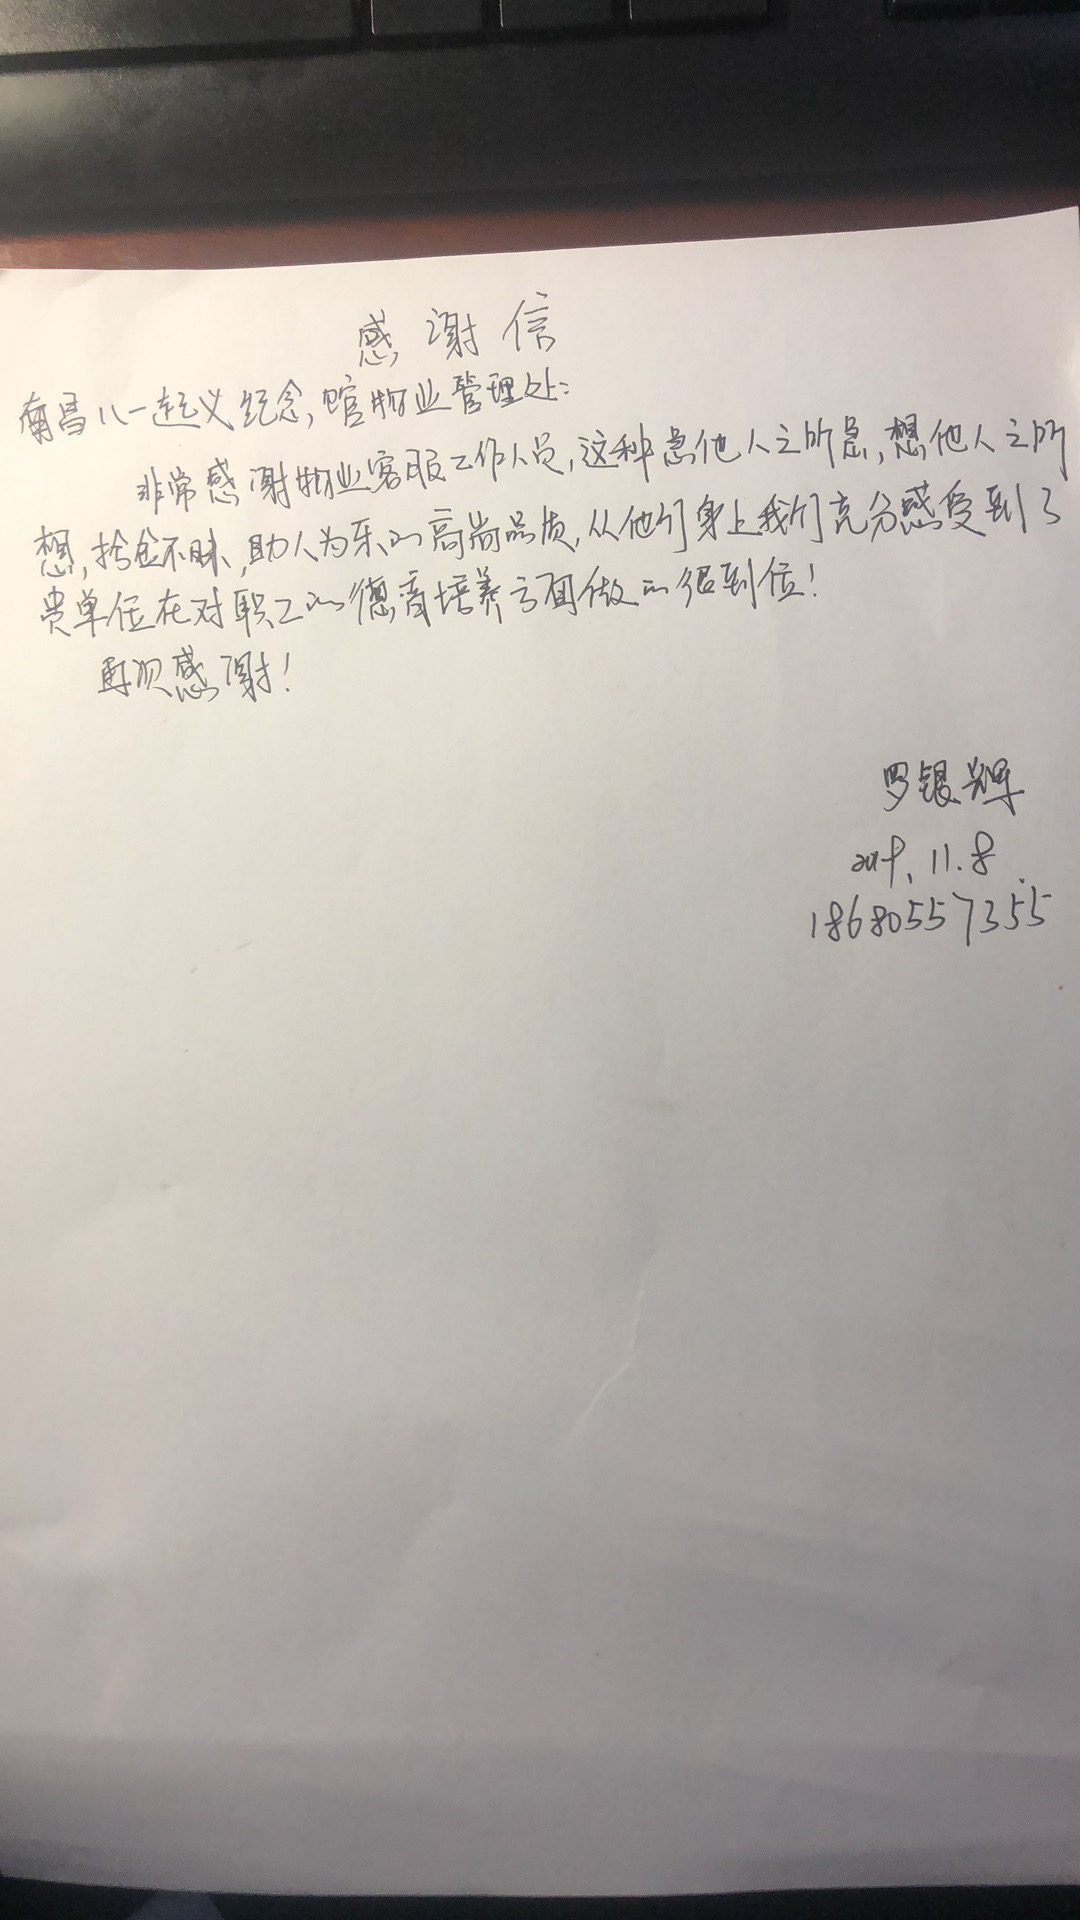 感谢信
南昌八一起义纪念馆物业管理处:
非常感谢物业客服工作人员,这种急他人之所急,想他人之所
想,拾金不昧,助人为乐的高尚品质,从他们身上我们充分感受到了
贵单位在对职工的德育培养方面做的很到位!
再次感谢!
罗银辉
2019.11.8
18680557355